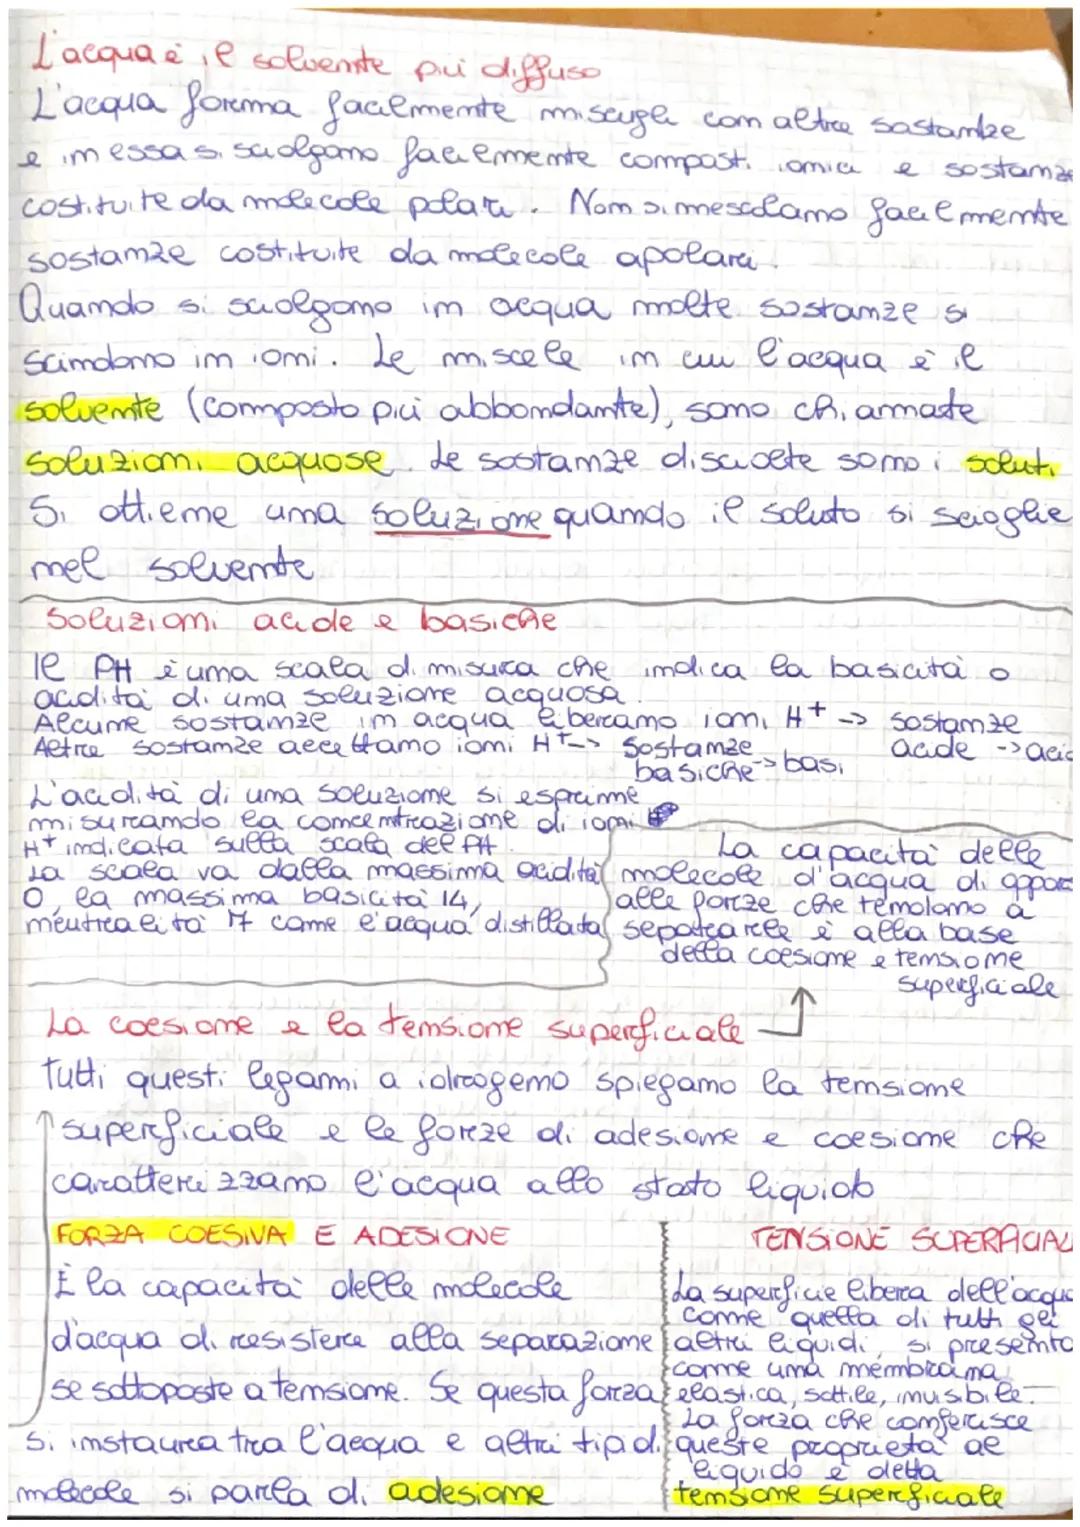 L'acqua è il solvente più diffuso
L'acqua forma facilmente miscugli con altre sostanze
e in essa si sciolgono facilmente composti ionici e sostanze
costituite da molecole polari. Non si mescolano facilmente
sostanze costituite da molecole apolari.
Quando si sciolgono in acqua molte sostanze si
scindono in ioni. Le miscele in cui l'acqua è il
solvente (composto più abbondante), sono chiamate
soluzioni acquose. Le sostanze disciolte sono i soluti
Si ottiene una soluzione quando il soluto si scioglie
nel solvente
Soluzioni acide e basiche
Il PH è una scala di misura che indica la basicità o
acidità di una soluzione acquosa.
Alcune sostanze in acqua liberano ioni H+ -> sostanze
acide -> acid
Altre sostanze accettano ioni H+ -> Sostanze
basiche -> basi
L'acidità di una soluzione si esprime
misurando la concentrazione di ioni
H+ indicata sulla scala del PH.
La scala va dalla massima acidità
0, la massima basicità 14,
neutralità 7 come l'acqua distillata
La capacità delle
molecole d'acqua di oppors
alle forze che tendono a
separarle è alla base
della coesione e tensione
superficiale
La coesione e la tensione superficiale
Tutti questi legami a idrogeno spiegano la tensione
superficiale e le forze di adesione e coesione che
caratterizzano l'acqua allo stato liquido
FORZA COESIVA E ADESIONE
È la capacità delle molecole
d'acqua di resistere alla separazione
se sottoposte a tensione. Se questa forza
si instaura tra l'acqua e altri tipi di
molecole si parla di adesione
TENSIONE SUPERFICIAL
La superficie libera dell'acqua
come quella di tutti gli
altri liquidi, si presenta
come una membrana
elastica, sottile, invisibile.
La forza che conferisce
queste proprietà al
liquido è detta
tensione superficiale